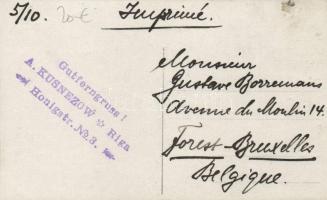 5/10.
20 €
Imprimé.
Gutferngruss!
A. KUSNEZOW ☆ Riga
Honigstr. № 3.
Monsieur
Gustave Borremans
Avenue du Moulin 14.
Forest-Bruxelles
Belgique.